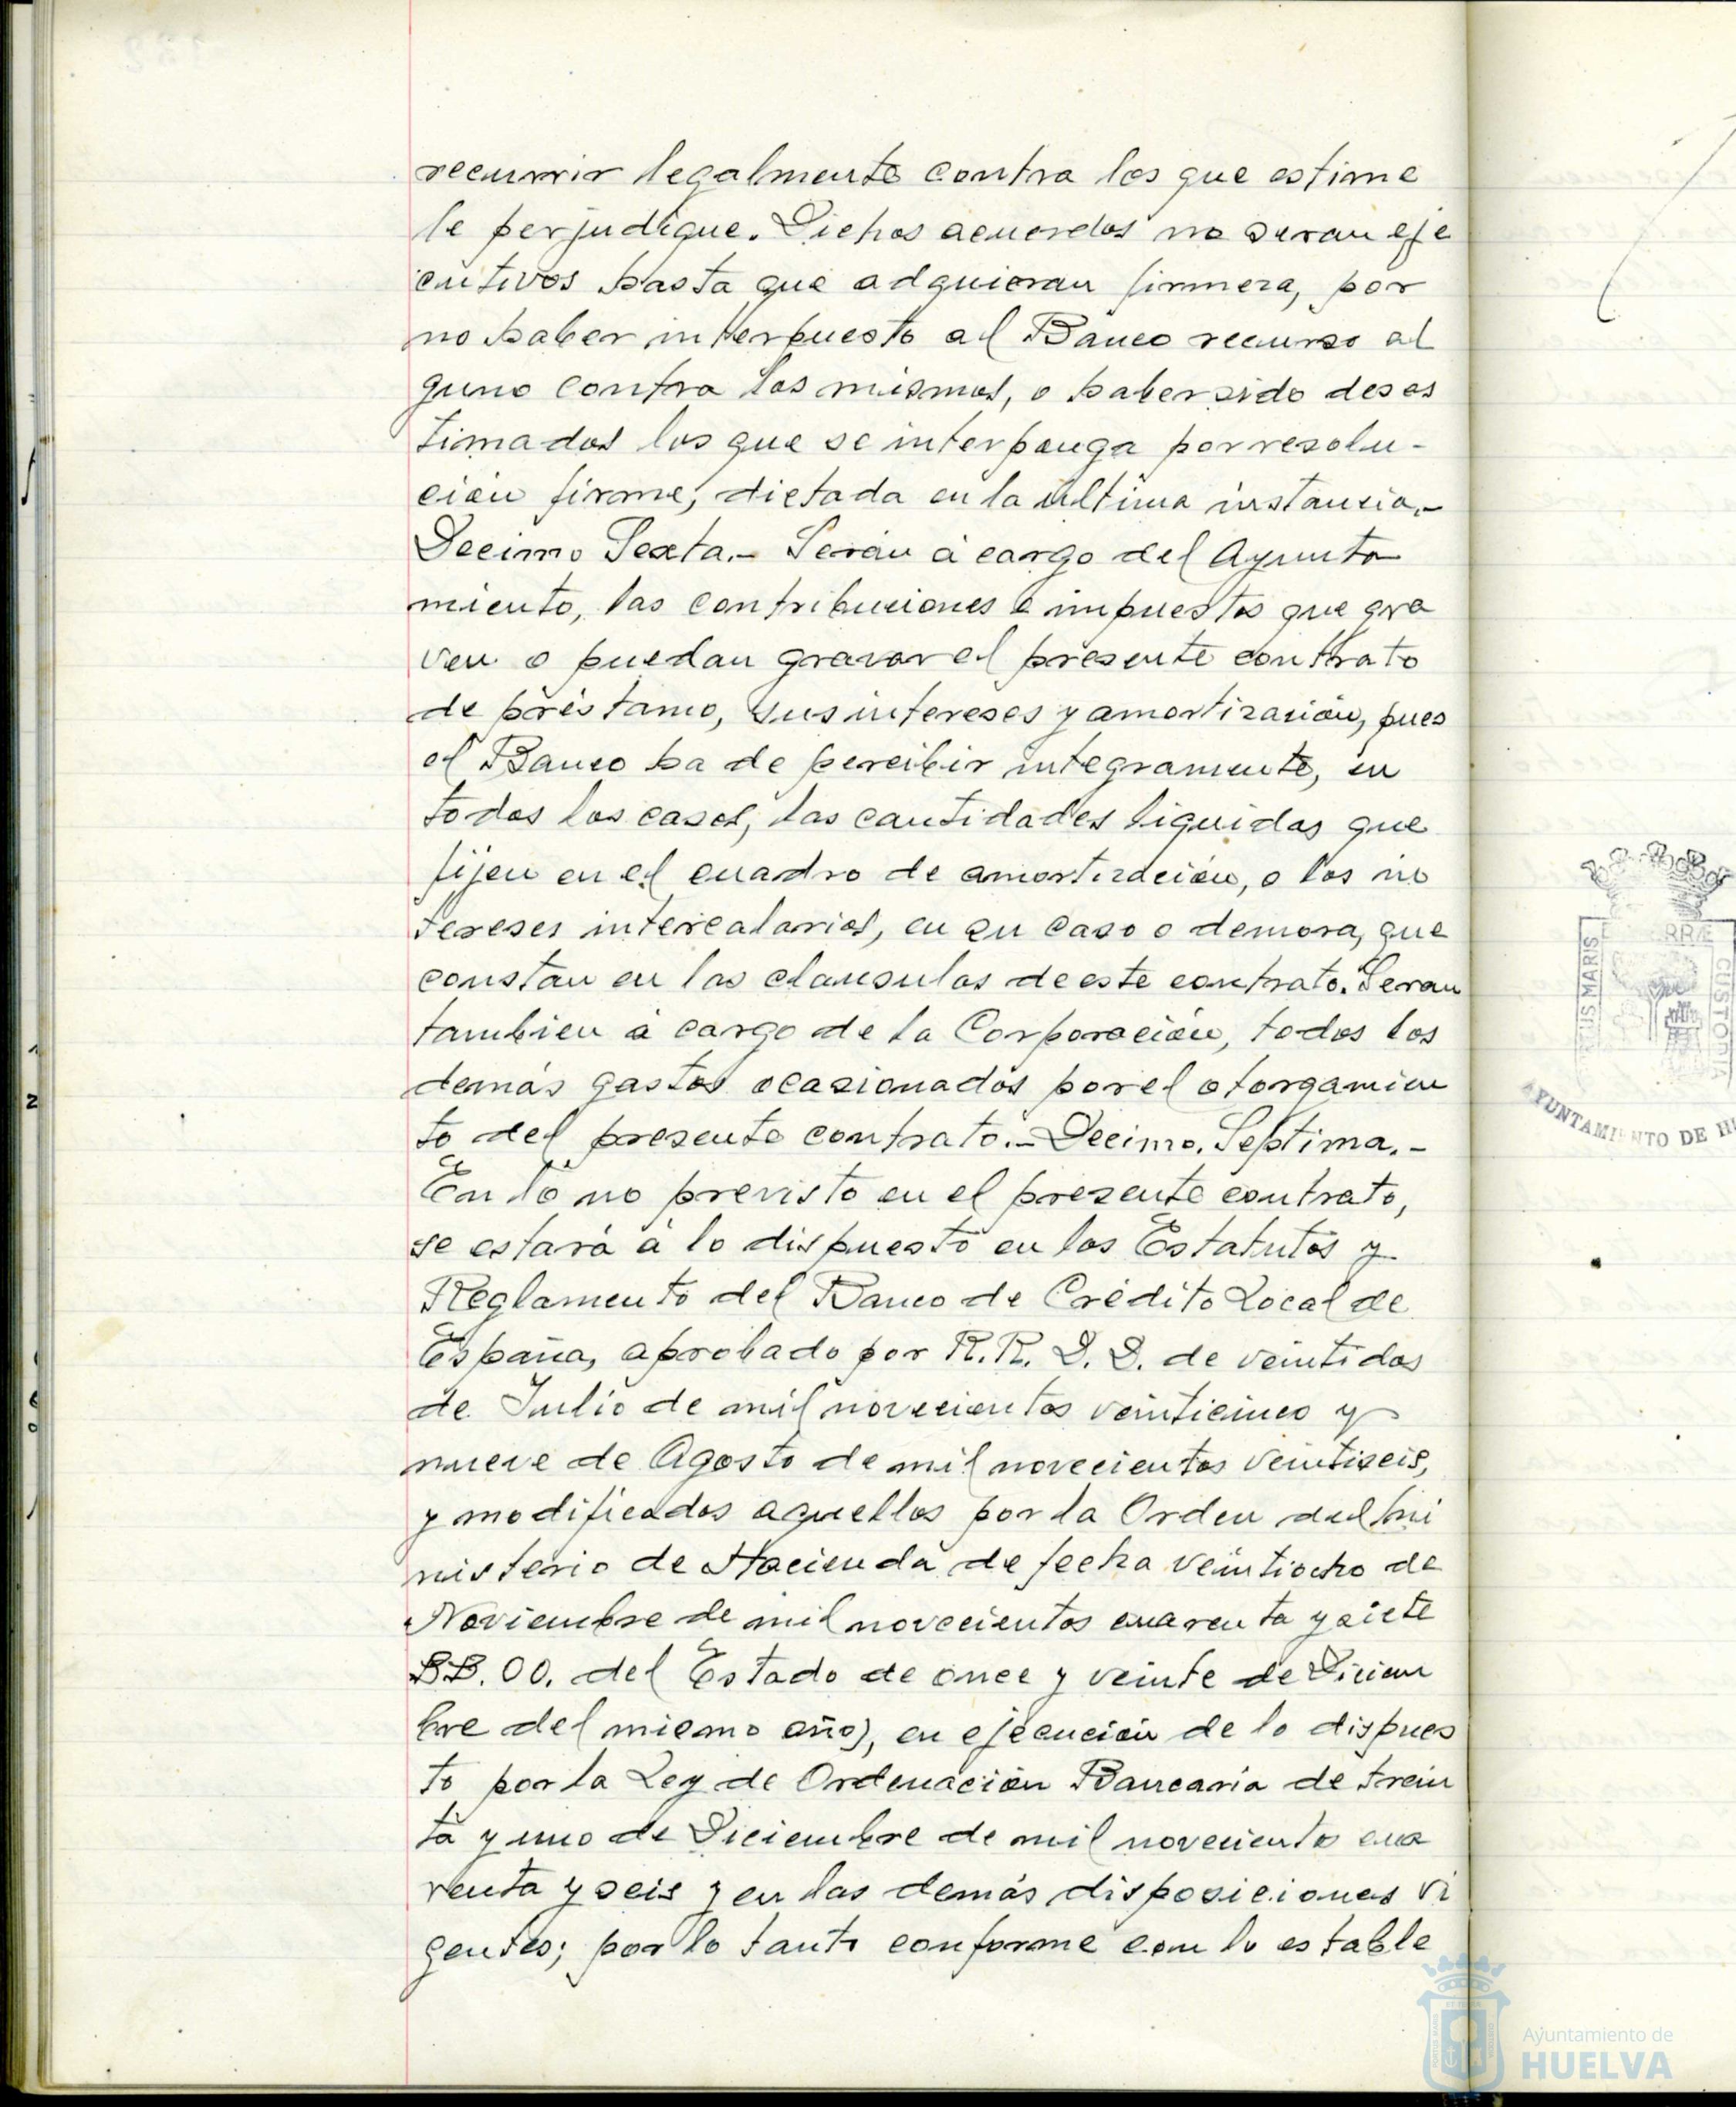 recurrir legalmente contra los que estime
le perjudique. Dichos acuerdos no seran eje
cutivos hasta que adquieran firmeza, por
no haber interpuesto al Banco recurso al
guno contra los mismos, o haber sido deses
timados los que se interponga por resolu-
ción firme, dictada en la última instancia.-
Decimo Sexta.- Serán á cargo del Ayunta
miento, las contribuciones e impuestos que gra
ven o puedan gravar el presente contrato
de préstamo, sus intereses y amortización, pues
el Banco ha de percibir integramente, en
todos los casos, las cantidades liquidas que
fijen en el cuadro de amortización, o los in
tereses intercalarios, en su caso o demora, que
constan en las clausulas de este contrato. Seran
tambien á cargo de la Corporación, todos los
demás gastos ocasionados por el otorgamien
to del presente contrato.- Decimo. Septima.-
En lo no previsto en el presente contrato,
se estará á lo dispuesto en los Estatutos y
Reglamento del Banco de Crédito Local de
España, aprobado por R.R. D.D. de veintidos
de Julio de mil novecientos veinticinco y
nueve de Agosto de mil novecientos veintiseis,
y modificados aquellos por la Orden del Mi
nisterio de Hacienda de fecha veintiocho de
Noviembre de mil novecientos cuarenta y siete
BB.OO. del Estado de once y veinte de Diciem
bre del mismo año), en ejecución de lo dispues
to por la Ley de Ordenación Bancaria de trein
ta y uno de Diciembre de mil noveciento cua
renta y seis y en las demás disposiciones vi
gentes; por lo tanto conforme con lo estable
AYUNTAMIENTO DE H
Ayuntamiento de
HUELVA